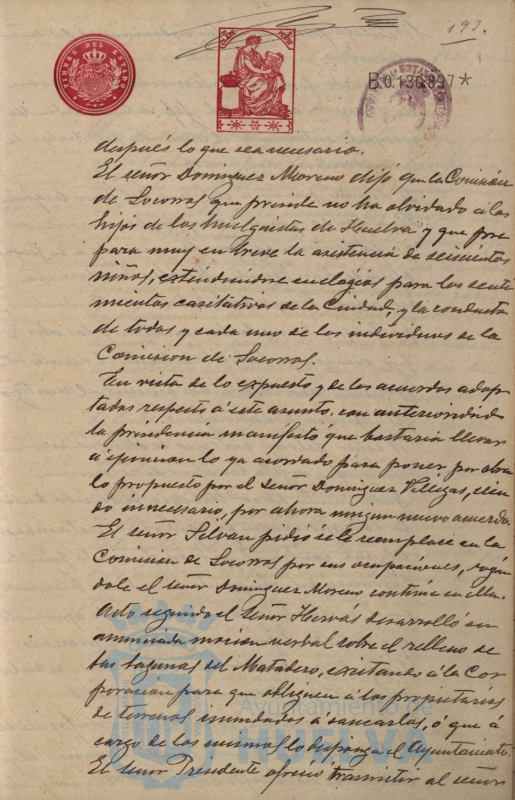 193.
TIMBRE DEL ESTADO
B.0.130.897*
después lo que sea necesario.
El señor Dominguez Moreno dijó que la Comisión
de Socorros que preside no ha olvidado á los
hijos de los huelguistas de Huelva y que pre
para muy en breve la asistencia de seiscientos
niños, estendiendose en elogios para los senti
mientos caritativos de la Ciudad, y la conducta
de todos y cada uno de los individuos de la
Comisión de Socorros.
En vista de lo expuesto y de los acuerdos adop
tados respecto á este asunto, con anterioridad
la presidencia manifestó que bastaria llevar
á ejecucion lo ya acordado para poner por obra
lo propuesto por el señor Dominguez Villegas, sien
do innecesario, por ahora ningun nuevo acuerdo.
El señor Silván pidió se le reemplace en la
Comisión de Socorros por sus ocupaciones, rogán
dole el señor Dominguez Moreno continúe en ella.
Acto seguido el señor Hervás desarrolló su
anunciada mocion verbal sobre el relleno de
las lagunas del Matadero, excitando á la Cor
poración para que obliguen á los propietarios
de terrenos inundados á sanearlos, ó que á
cargo de los mismos lo disponga el Ayuntamiento.
El señor Presidente ofreció trasmitir al señor
Ayuntamiento de
HUELVA